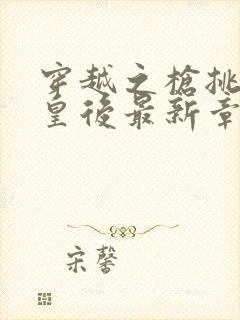 穿越之槍挑
皇後最新章
宋馨